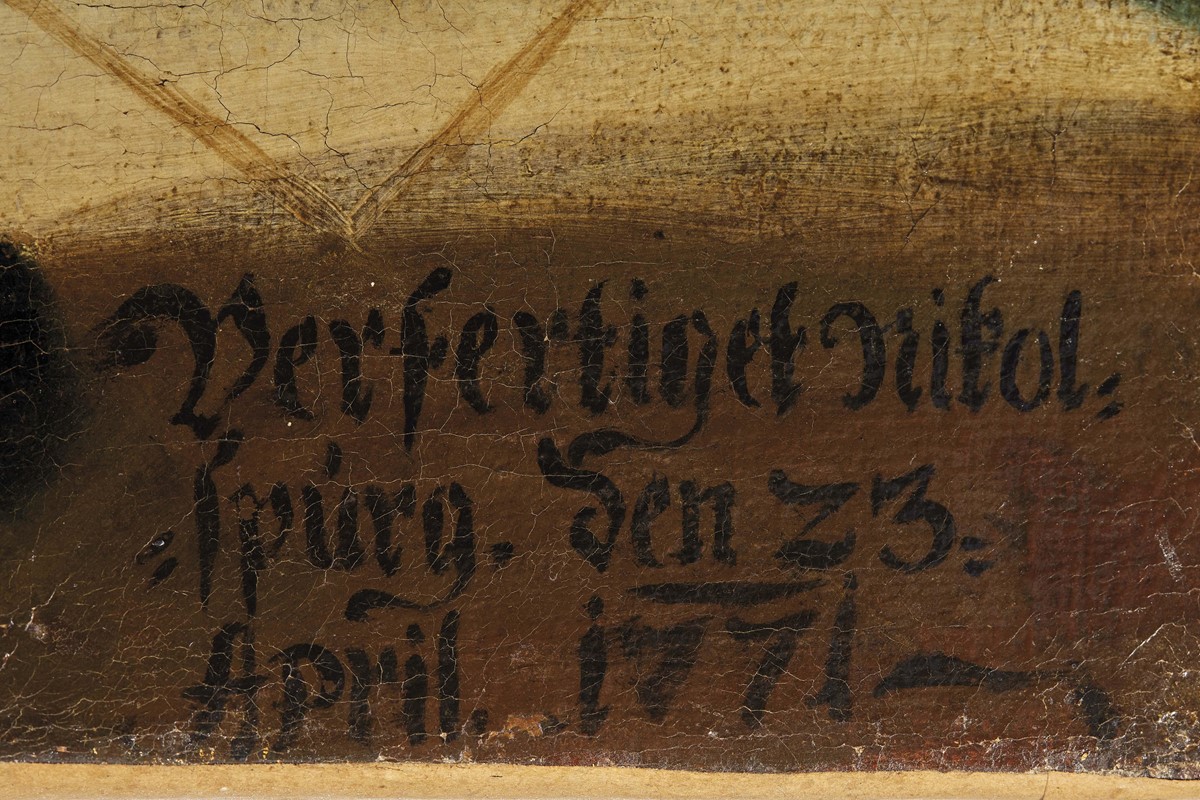 Verfertiget Nikol⸗
⸗spúrg. den 23⸗
April. 1771